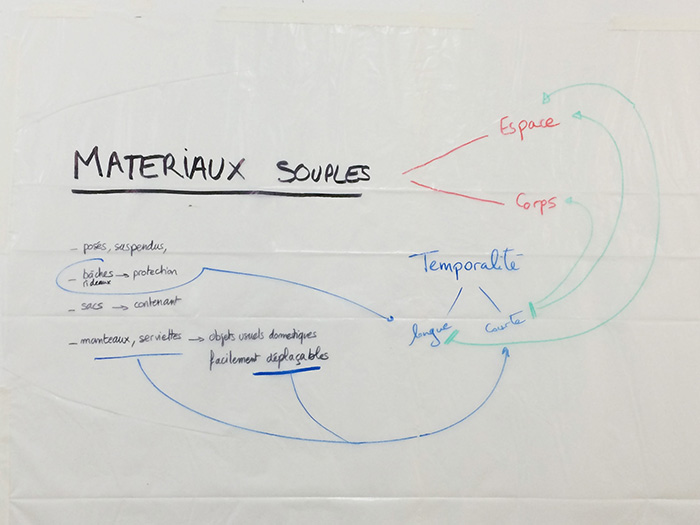 MATERIAUX SOUPLES
Espace
Corps
- posés, suspendus,
- bâches → protection
rideaux
- sacs → contenant
- manteaux, serviettes → objets usuels domestiques
facilement déplaçables
Temporalité
longue
courte